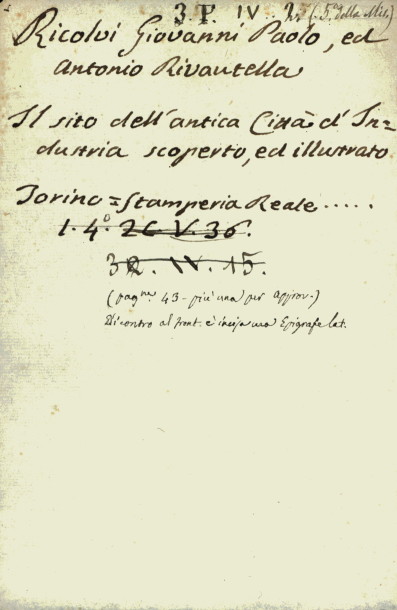 3 P. IV. 2 (5.º della Mis.)
Ricolvi Giovanni Paolo, ed
Antonio Rivautella
Il sito dell'antica Città d'In=
dustria scoperto, ed illustrato
Torino = Stamperia Reale .....
1. 4.º 2C. V. 36.
32. IV. 15.
(pag.ne 43 - più una per approv.)
Di contro al front. è incisa una Epigrafe lat.